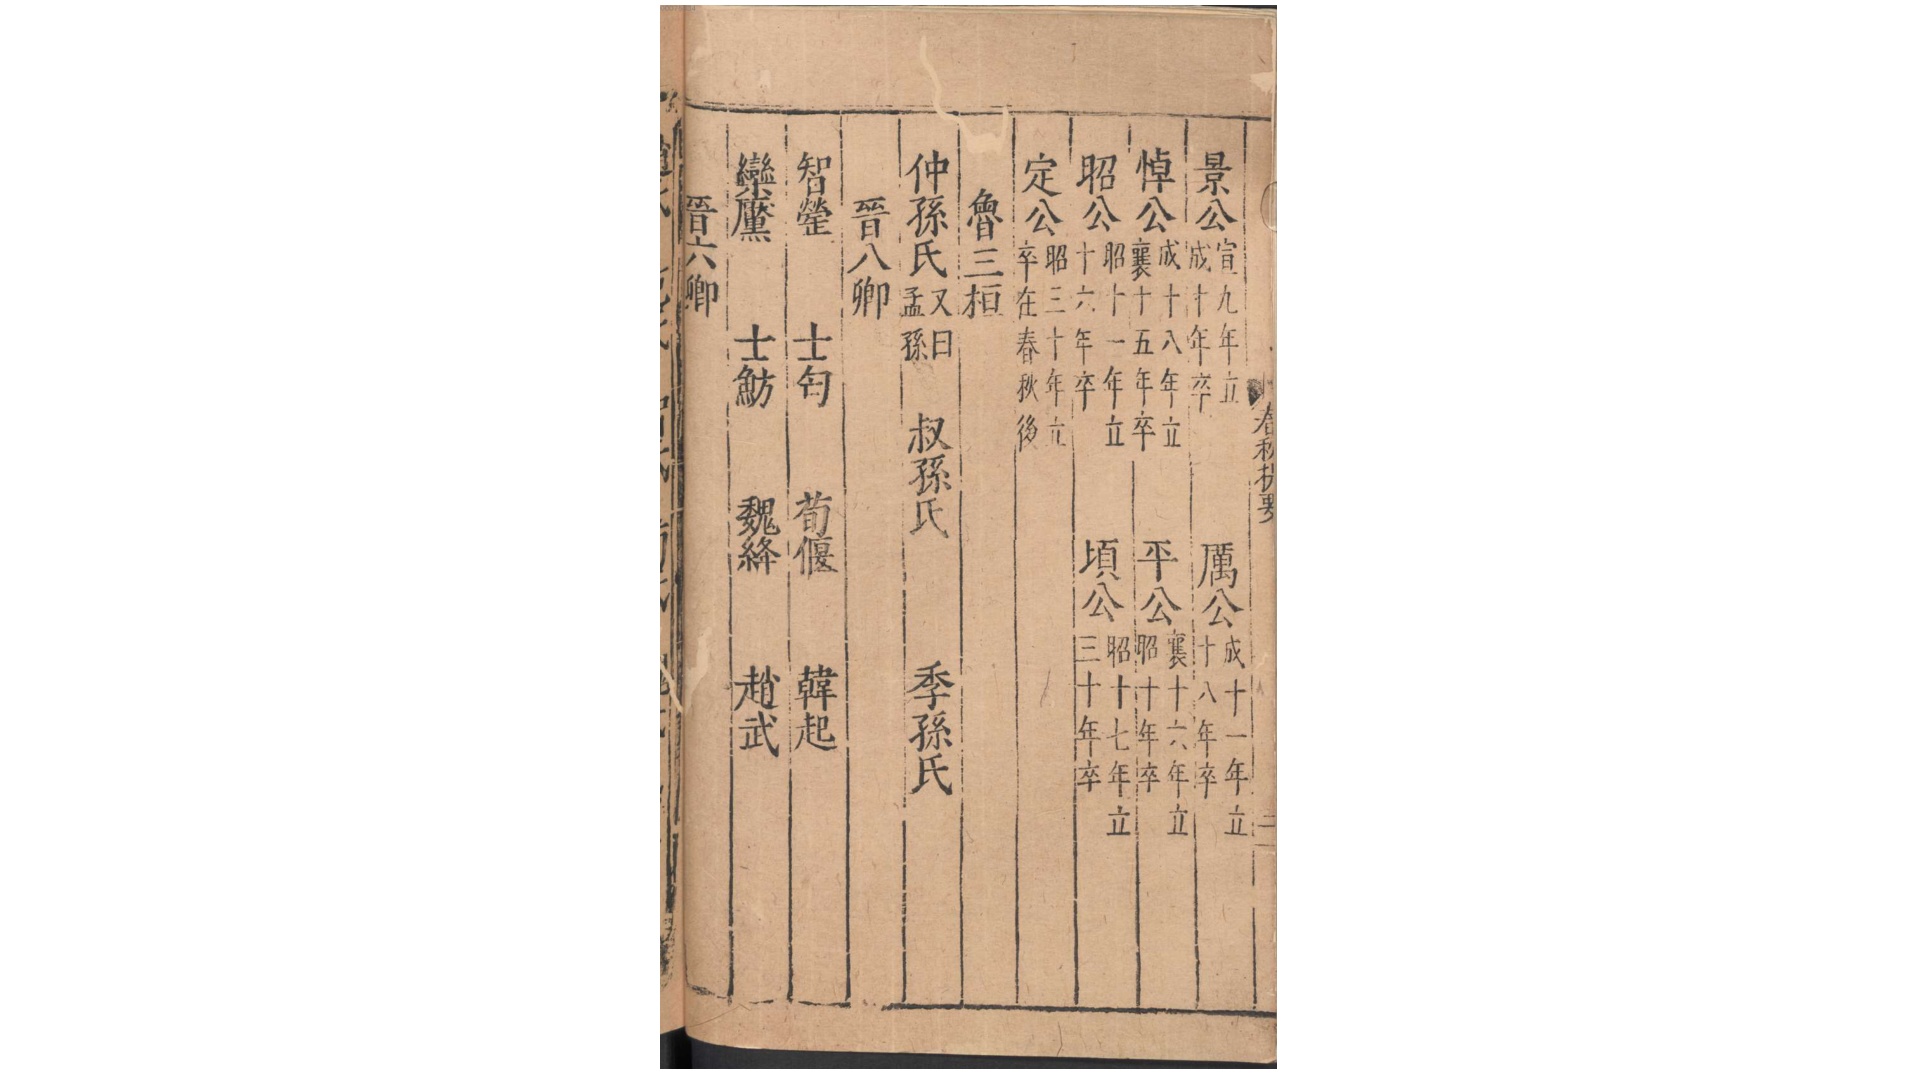 春秋提要
二
景公宣九年立成十年卒 厲公成十一年立十八年卒
悼公成十八年立襄十五年卒 平公襄十六年立昭十年卒
昭公昭十一年立十六年卒 頃公昭十七年立三十年卒
定公昭三十年立卒在春秋後
魯三桓
仲孫氏又曰孟孫 叔孫氏 季孫氏
晉八卿
智罃 士匄 荀偃 韓起
欒黶 士魴 魏絳 趙武
晉六卿